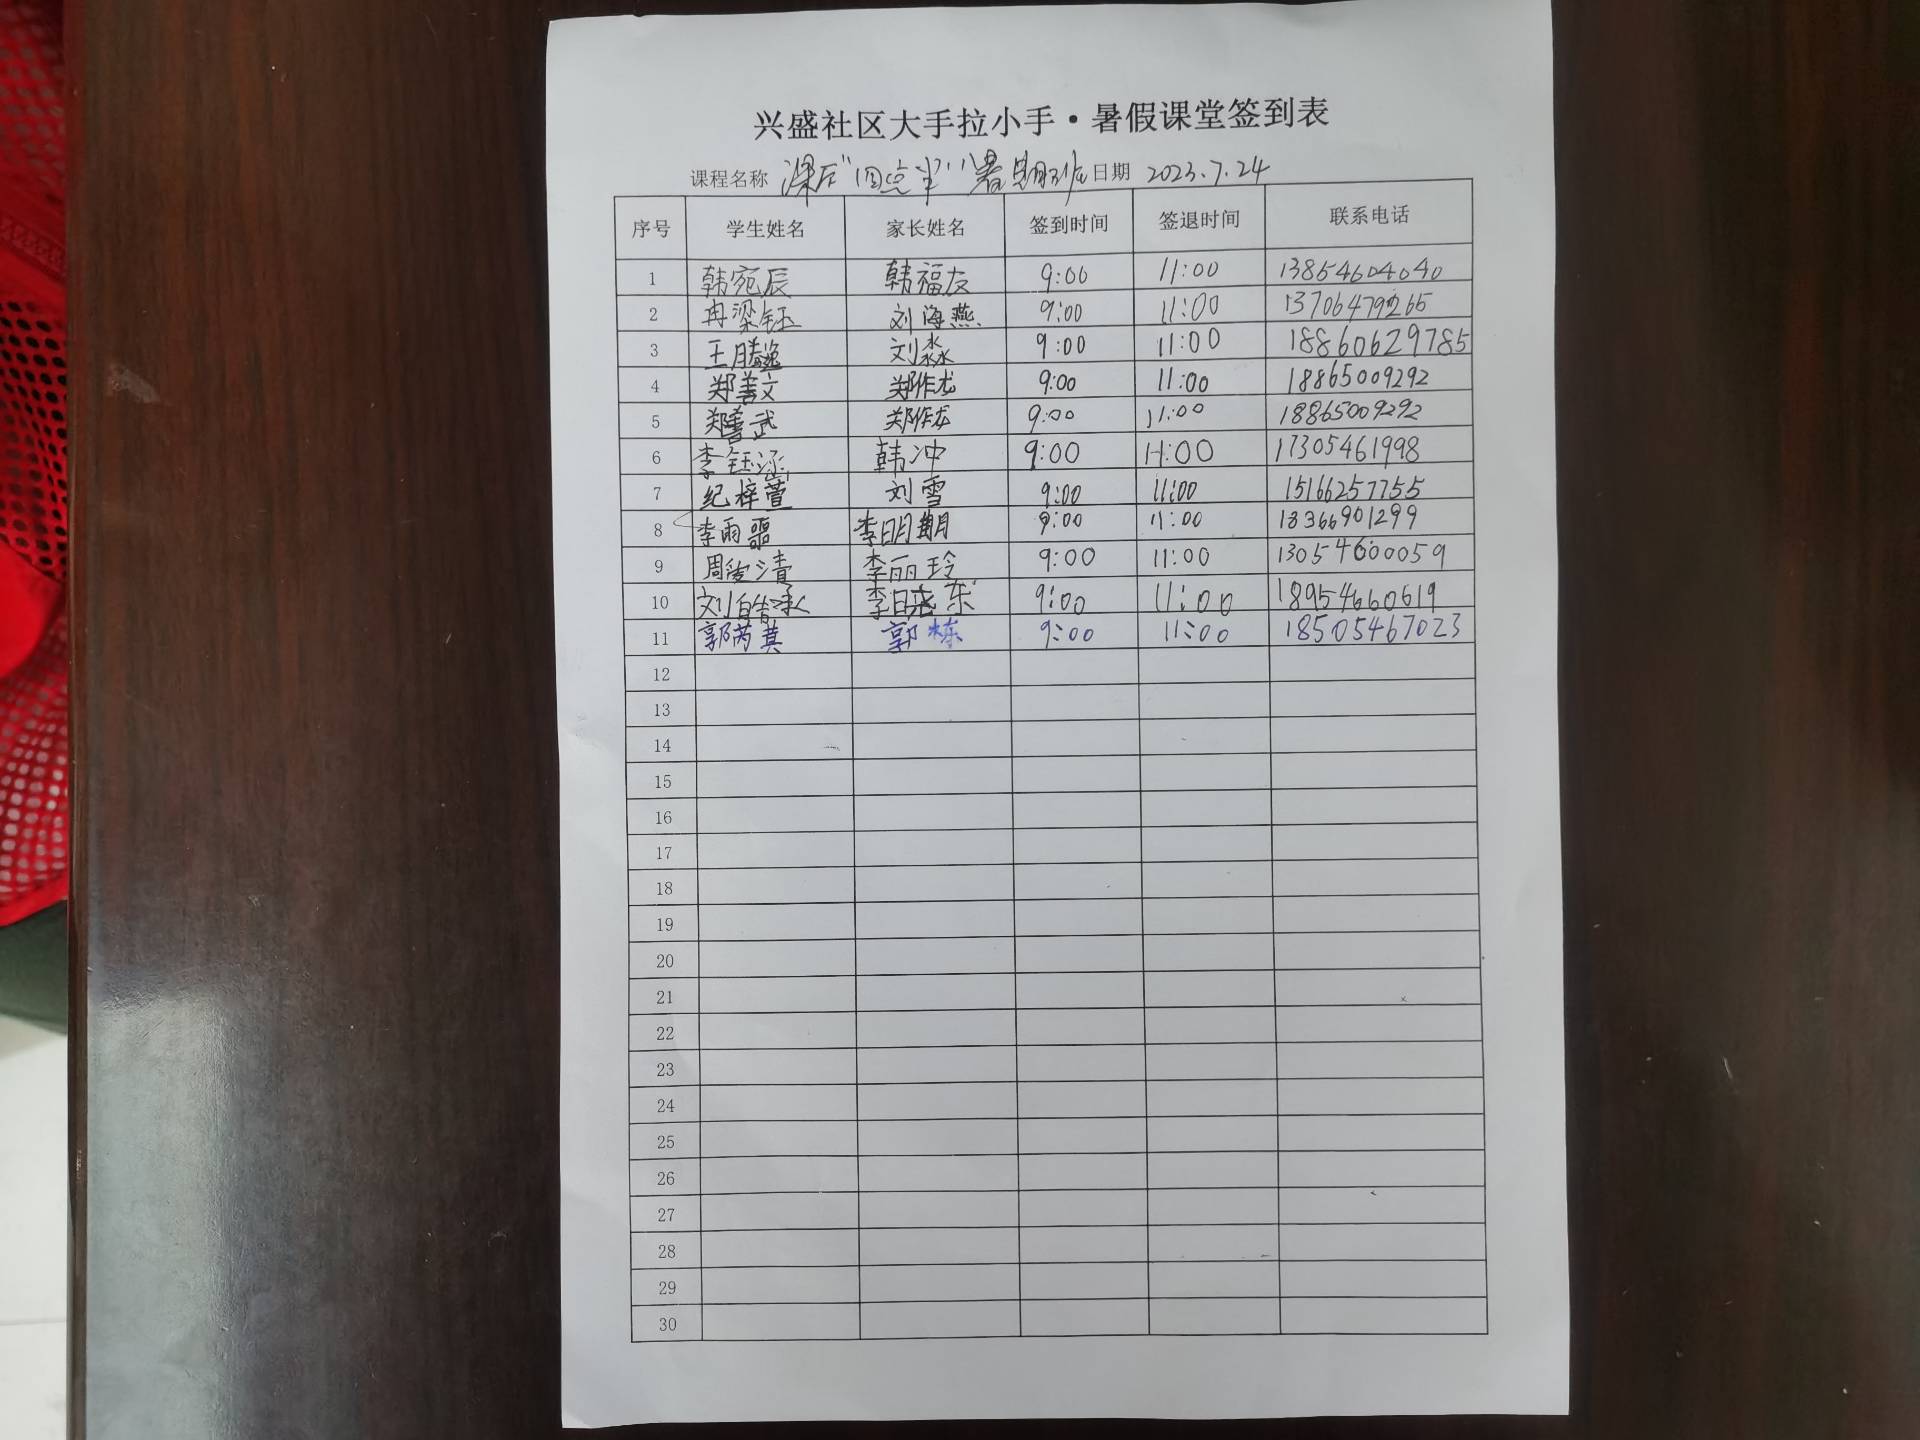 兴盛社区大手拉小手·暑假课堂签到表
课程名称 课后"四点半"暑期班 日期 2023.7.24
序号 学生姓名 家长姓名 签到时间 签退时间 联系电话
1 韩宛辰 韩福友 9:00 11:00 13854604040
2 冉梁钰 刘海燕 9:00 11:00 13706479265
3 王腾逸 刘淼 9:00 11:00 18860629785
4 郑善文 郑作龙 9:00 11:00 18865009292
5 郑善武 郑作龙 9:00 11:00 18865009292
6 李钰涵 韩冲 9:00 11:00 17305461998
7 纪梓萱 刘雪 9:00 11:00 15166257755
8 李雨 李明期 9:00 11:00 13366901299
9 周 清 李丽玲 9:00 11:00 13054600059
10 刘皓承 李晓东 9:00 11:00 18954660619
11 郭芮萁 郭栋 9:00 11:00 18505467023
12
13
14
15
16
17
18
19
20
21
22
23
24
25
26
27
28
29
30